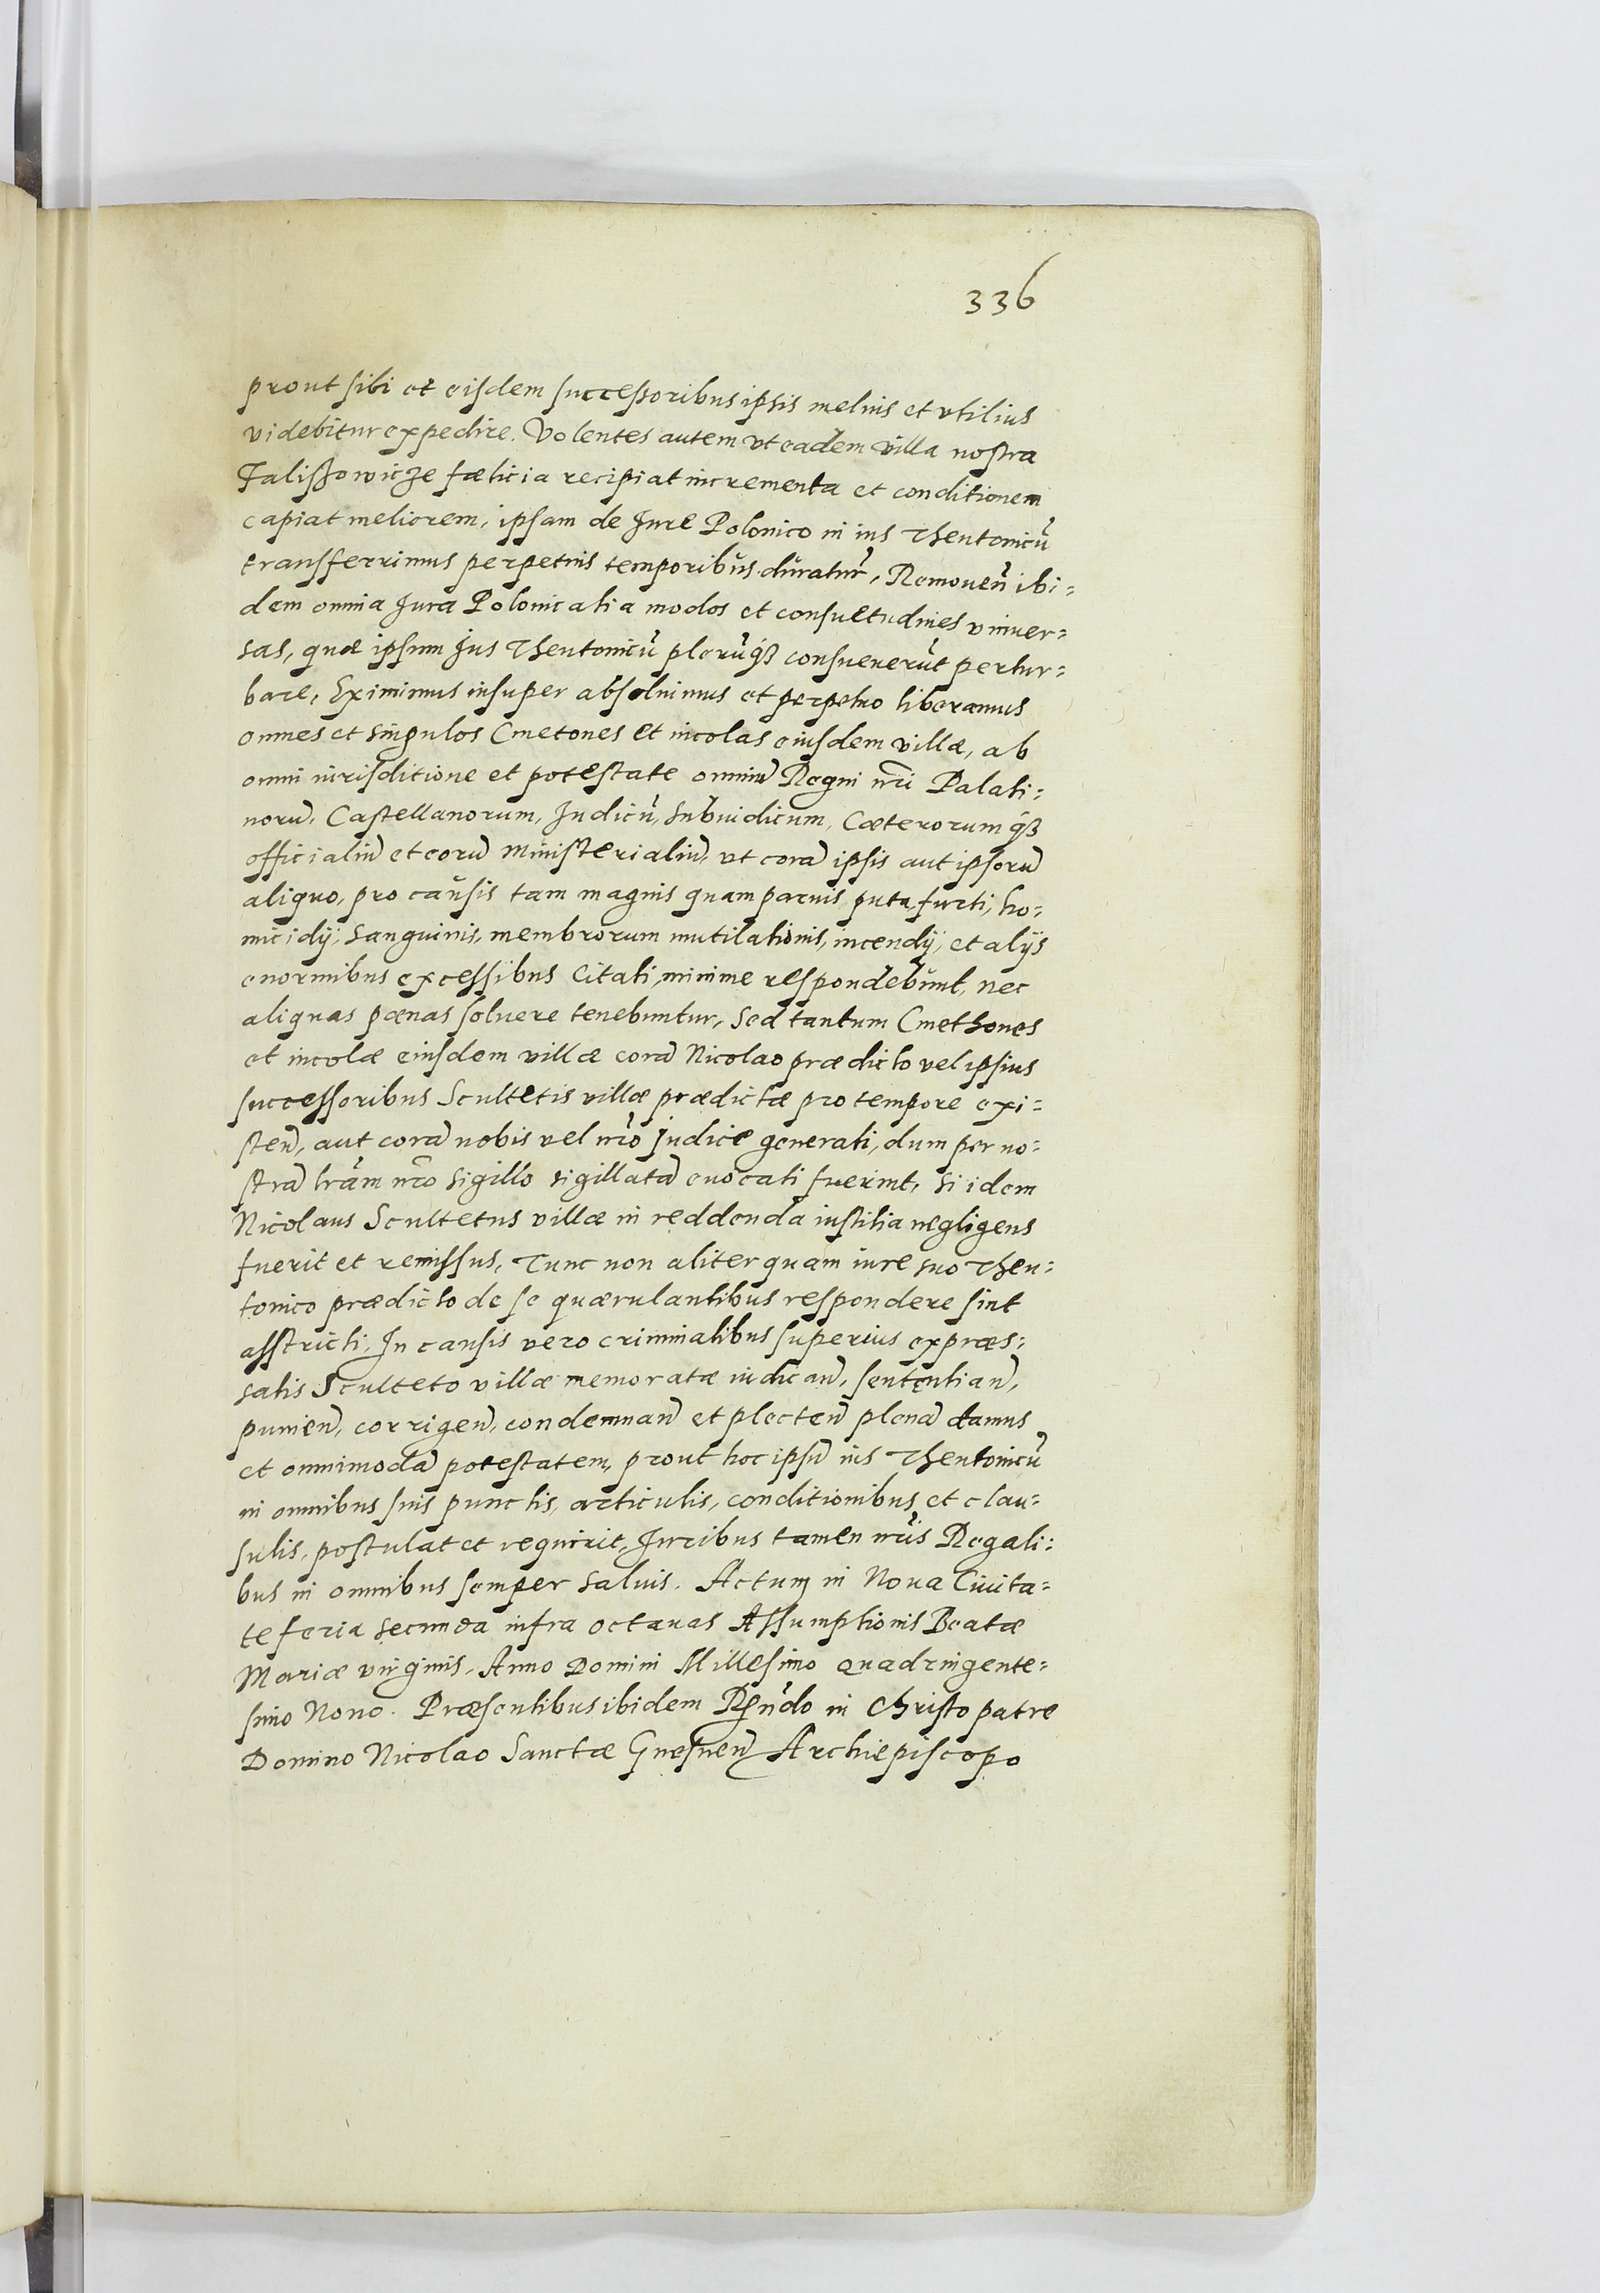 336
prout sibi et eisdem successoribus ipsis melius et vtilius
videbitur expedire. Volentes autem vt eadem villa nostra
Falissowicze fælicia recipiat incrementa et conditionem
capiat meliorem, ipsam de Jure Polonico in ius Theutonicũ
transferrimus perpetuis temporibus duratur̃, Remouen̄ ibi=
dem omnia Jura Polonicalia modos et consuetudines vniuer=
sas, quæ ipsum Jus Theutonicũ plerũq̃ȝ consueuerũt pertur=
bare, Eximimus insuper absoluimus et perpetuo liberamus
omnes et singulos Cmetones et incolas eiusdem villæ, ab
omni iurisditione et potestate omniũ Regni nr̃i Palati=
norũ, Castellanorum, Judicũ, Subiudicum, Cæterorumq̃ȝ
officialiũ et eorũ Ministerialiũ, vt corã ipsis aut ipsorũ
aliquo, pro causis tam magnis quam paruis puta, furti, ho=
micidij, Sanguinis, membrorum mutilationis, incendij, et alijs
enormibus excessibus Citati, minime respondebunt, nec
aliquas pœnas soluere tenebuntur, Sed tantum Cmethones
et incolæ eiusdem villæ corã Nicolao prædicto vel ipsius
successoribus Scultetis villæ prædictæ pro tempore exi=
sten̄, aut corã nobis vel nr̃o Judice generali, dum per no=
strã lr̃am nr̃o Sigillo sigillatã euocati fuerint, Si idem
Nicolaus Scultetus villæ in reddenda iustitia negligens
fuerit et remissus, Tunc non aliter quam iure suo Theu=
tonico prædicto de se quærulantibus respondere sint
asstricti, In causis vero criminalibus superius expræs=
satis Sculteto villæ memoratæ iudican̄, sententian̄,
punien̄, corrigen̄, condemnan̄ et plecten̄ plenã damus
et omnimodã potestatem, prout hoc ipsũ ius Theutonicũ
in omnibus suis punctis, articulis, conditionibus et clau=
sulis, postulat et requirit, Juribus tamen nr̃is Regali=
bus in omnibus semper saluis. Actum in Noua Ciuita=
te feria secunda infra octauas Assumptionis Beatæ
Mariæ virginis, Anno Domini Millesimo Quadringente=
simo Nono. Præsentibus ibidem Rn̄do in Christo patre
Domino Nicolao Sanctæ Gnesnen̄ Archiepiscopo